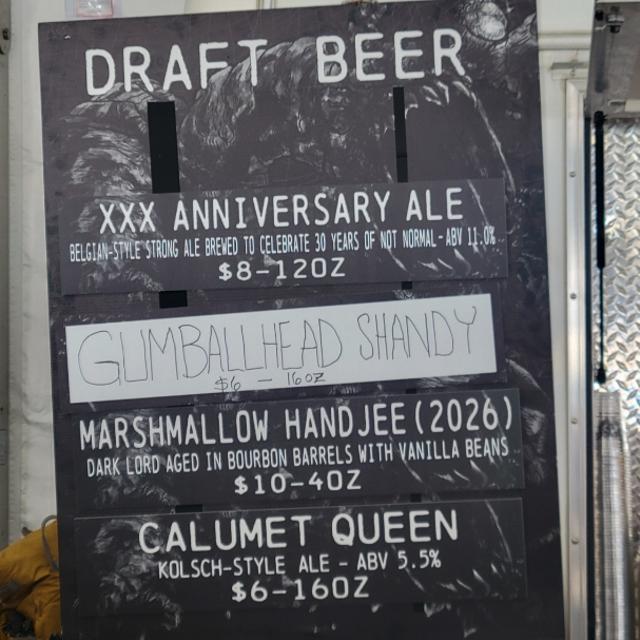 DRAFT BEER
XXX ANNIVERSARY ALE
BELGIAN-STYLE STRONG ALE BREWED TO CELEBRATE 30 YEARS OF NOT NORMAL-ABV 11.0%
$8-12OZ
GUMBALLHEAD SHANDY
$6 - 16oz
MARSHMALLOW HANDJEE (2026)
DARK LORD AGED IN BOURBON BARRELS WITH VANILLA BEANS
$10-4OZ
CALUMET QUEEN
KOLSCH-STYLE ALE - ABV 5.5%
$6-16OZ